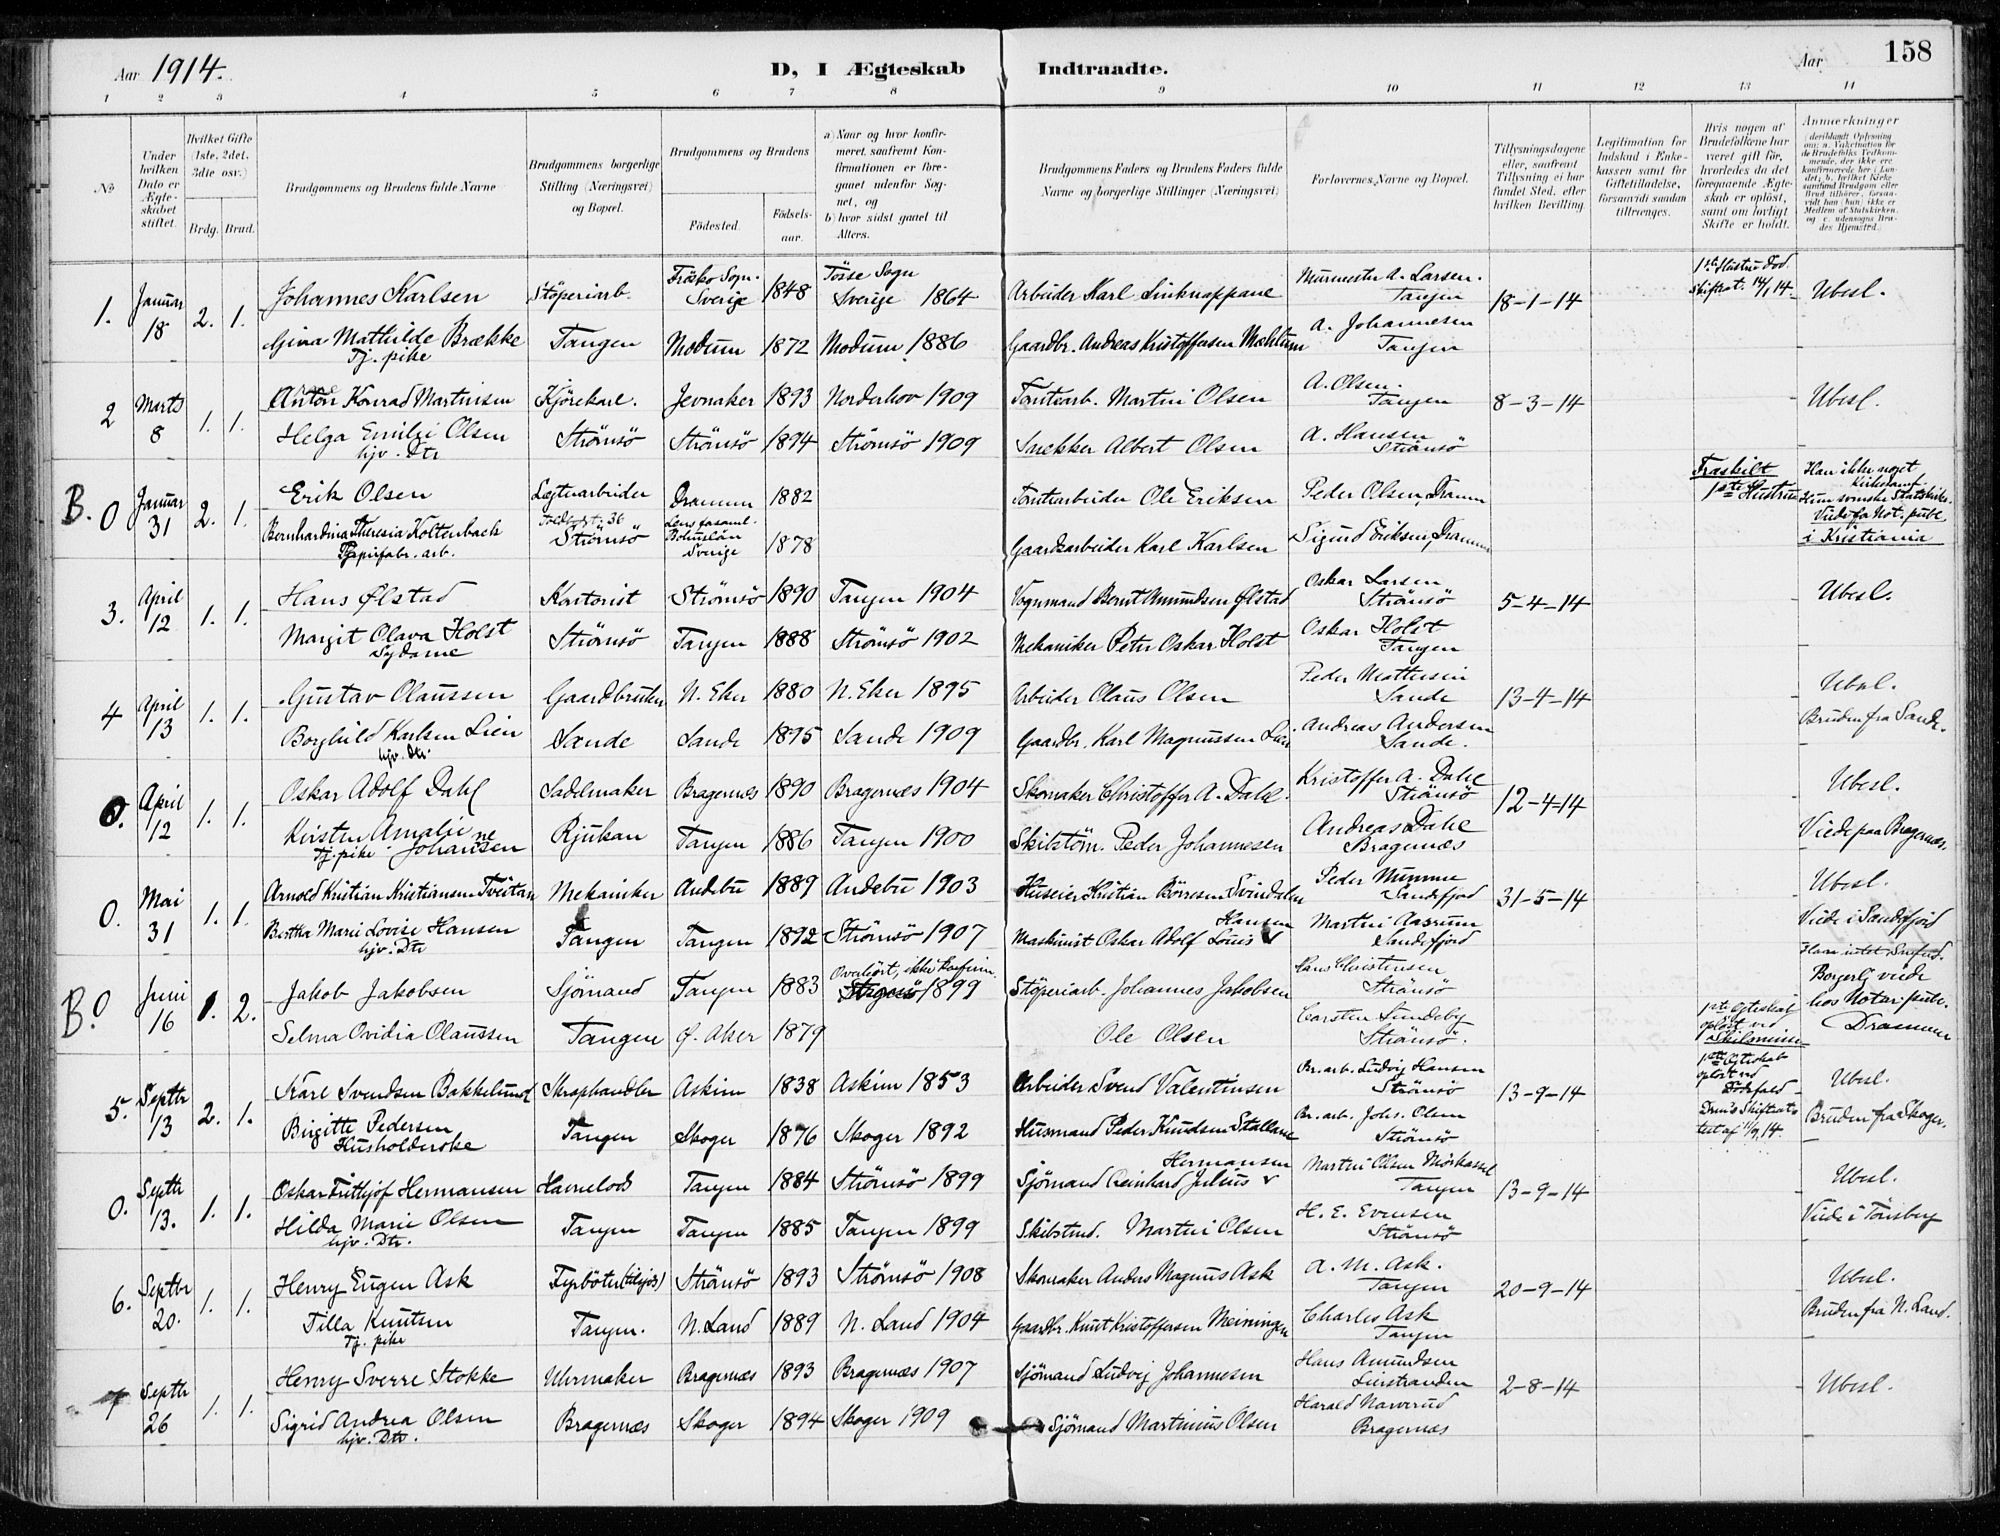 Aar 1914.
D, I Ægteskab Indtraadte.
Aar 158
1 2 3 4 5 6 7 8 9 10 11 12 13 14
No
Under hvilken Dato er Ægteskabet stiftet.
Hvilket Gifte (1ste, 2det, 3die osv.)
Brdg. Brud.
Brudgommens og Brudens fulde Navne
Brudgommens borgerlige Stilling (Næringsvei) og Bopæl.
Brudgommens og Brudens
Fødested. Fødselsaar.
a) Naar og hvor konfirmeret, saafremt Konfirmationen er foregaaet udenfor Sognet, og
b) hvor sidst gaaet til Alters.
Brudgommens Faders og Brudens Faders fulde Navne og borgerlige Stillinger (Næringsvei)
Forlovernes Navne og Bopæl.
Tillysningsdagene eller, saafremt Tillysning ei har fundet Sted, efter hvilken Bevilling.
Legitimation for Indskud i Enkekassen samt for Giftetilladelse, forsaavidt saadan tiltrænges.
Hvis nogen af Brudefolkene har været gift før, hvorledes da det foregaaende Ægteskab er opløst, samt om lovligt Skifte er holdt.
Anmærkninger
1. Januar 18 2. 1. Johannes Karlsen Støperiarb. Sverige 1848 Tösse Sogn Sverige 1864 Arbeider Karl Murmester A. Larsen. Tangen 18-1-14 1ste Hustru Død. Skifteat. 14/1 14. Ubesl.
Gina Mathilde Brække Tj. pike Tangen Modum 1872 Modum 1886 Gaardbr. Andreas Kristoffersen A. Johannesen Tangen
2 Marts 8 1. 1. Konrad Martinsen Kjørekarl. Jevnaker 1893 Norderhov 1909 Tomtearb. Martin Olsen A. Olsen. Tangen 8-3-14 Ubesl.
Helga Emilie Olsen hjv. Dtr Strømsö Strømsö 1894 Strømsö 1909 Snekker Albert Olsen A. Hansen Strömsö
B. 0 Januar 31 2. 1. Erik Olsen Drammen 1882 Tomtearbeider Ole Eriksen Peder Olsen, Dramm Fraskilt 1ste Hustru
Bernhardina Theresia Koltenbach Papirfabr. arb. Strömsö Bohuslän Sverige 1878 Gaardsarbeider Karl Karlsen Sigurd Eriksen, Dramm Viede fa Not. publ. i Kristiania
3. April 12 1. 1. Hans Ølstad Kontorist Strømsö 1890 Tangen 1904 Vognmand Bernt Amundsen Ølstad Oskar Larsen Strömsö 5-4-14 Ubesl.
Margit Olava Holst Sydame Strømsö Tangen 1888 Strømsö 1902 Mekaniker Peter Oskar Holst Oskar Holst Tangen
4 April 13 1. 1. Gustav Olaussen Gaardbruker N. Eker 1880 N. Eker 1895 Arbeider Olaus Olsen Peder Sande 13-4-14 Ubesl.
Borghild Karlsen Lien hjv. Dtr Sande Sande 1895 Sande 1909 Gaardbr. Karl Magnussen Lien Andreas Andersen Sande. Bruden fra Sande.
0. April 12 1. 1. Oskar Adolf Dahl Sadelmaker Bragernæs 1890 Bragernæs 1904 Skomaker Christoffer A. Dahl. Kristoffer A. Dahl Strömsö 12-4-14 Ubesl.
Kirsten Amalie Johannesen Tj. pike Rjukan Tangen 1886 Tangen 1900 Skibstöm. Peder Johannesen Andreas Dahl Bragernæs Viede paa Bragernæs.
0. Mai 31 1. 1. Arnold Kristian Kristiansen Tveitan Mekaniker Andebu 1889 Andebu 1903 Huseier Kristian Börresen Svindalen Peder Sandefjord 31-5-14 Ubesl.
Bertha Marie Lovise Hansen hjv. Dtr Tangen Tangen 1892 Strømsö 1907 Maskinist Oskar Adolf Louis Hansen Martin Aasrum Sandefjord Viede i Sandefjord
B. 0 Juni 16 1. 2. Jakob Jakobsen Sjømand Tangen 1883 Overhört, ikke konfirm. 1899 Støperiarb. Johannes Jakobsen Hans Christensen Strömsö Borgerl. viede hos Notar. publ. Drammen
Selma Ovidia Olaussen Tangen Ø. Aker 1879 Ole Olsen Carsten Sundeby Strömsö. 1ste Egteskab oplöst ved Skilsmisse
5. Septbr 13 2. 1. Karl Svendsen Bakkelund Skraphandler Askim 1838 Askim 1853 Arbeider Svend Valentinsen Br. arb. Ludvig Hansen Strömsö 13-9-14 1ste Egteskab oplöst ved Dödsfald Ubesl.
Birgitte Pedersen Husholderske Tangen Skoger 1876 Skoger 1892 Husmand Peder Knudsen Br. arb. Johs. Olsen Strömsö Drms Skifteat test af 11/9 14. Bruden fra Skoger.
0. Septbr 13. 1. 1. Oskar Fritjof Hermansen Havnelods Tangen 1884 Strømsö 1899 Sjömand Reinhard Julius Hermansen Martin Olsen Tangen 13-9-14 Ubesl.
Hilda Marie Olsen hjv. Dtr. Tangen Tangen 1885 Tangen 1899 Skibstmd. Martin Olsen H. E. Evensen Strömsö Viede i Tönsberg
6. Septbr 20. 1. 1. Henry Eugen Ask Fyrböter (tilsjös) Strömsö 1893 Strømsö 1908 Skomaker Anders Magnus Ask A. M. Ask. Tangen 20-9-14 Ubesl.
Tilla Knutsen Tj. pike Tangen. N. Land 1889 N. Land 1904 Gaardbr. Knut Kristoffersen Meiningen Charles Ask Tangen Bruden fra N. Land.
7 Septbr 26 1. 1. Henry Sverre Stokke Uhrmaker Bragernæs 1893 Bragernæs 1907 Sjömand Ludvig Johannesen Hans Amundsen Lierstranden 2-8-14 Ubesl.
Sigrid Andrea Olsen hjv. Dtr. Bragernæs Skoger 1894 Skoger 1909 Sjömand Martinius Olsen Harald Narverud Bragernæs